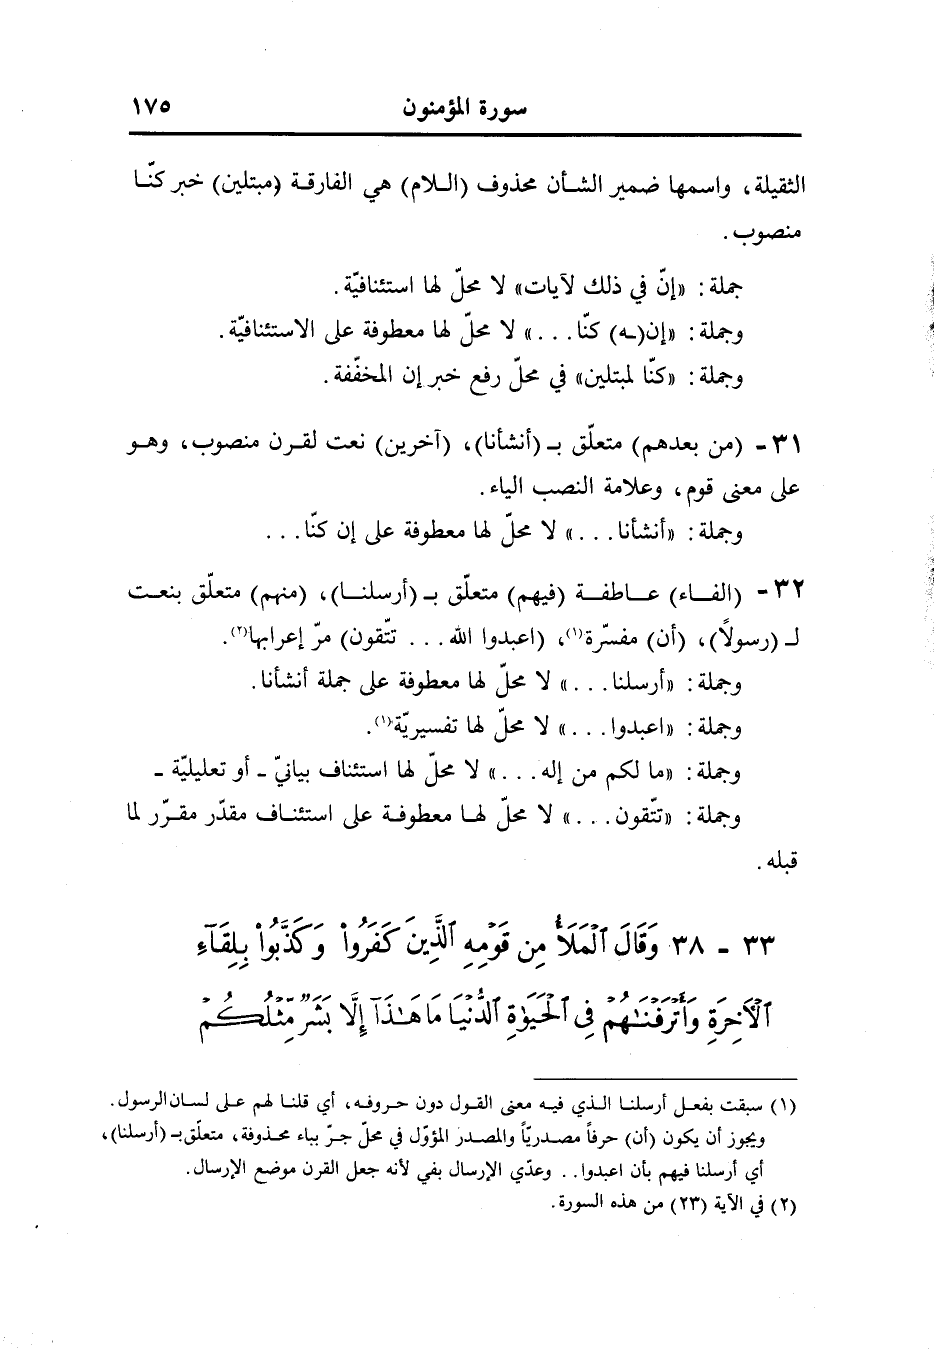 سورة المؤمنون ١٧٥
الثقيلة، واسمها ضمير الشأن محذوف (اللام) هي الفارقة (مبتلين) خبر كنّا
منصوب.
جملة: «إنّ في ذلك لآيات» لا محلّ لها استئنافيّة.
وجملة: «إن(ـه) كنّا...» لا محلّ لها معطوفة على الاستئنافيّة.
وجملة: «كنّا لمبتلين» في محلّ رفع خبر إن المخفّفة.
٣١ - (من بعدهم) متعلّق بـ (أنشأنا)، (آخرين) نعت لقرن منصوب، وهو
على معنى قوم، وعلامة النصب الياء.
وجملة: «أنشأنا...» لا محلّ لها معطوفة على إن كنّا...
٣٢ - (الفاء) عاطفة (فيهم) متعلّق بـ (أرسلنا)، (منهم) متعلّق بنعت
لـ (رسولاً)، (أن) مفسّرة(١)، (اعبدوا الله... تتّقون) مرّ إعرابها(٢).
وجملة: «أرسلنا...» لا محلّ لها معطوفة على جملة أنشأنا.
وجملة: «اعبدوا...» لا محلّ لها تفسيريّة(١).
وجملة: «ما لكم من إله...» لا محلّ لها استئناف بيانيّ - أو تعليليّة -
وجملة: «تتّقون...» لا محلّ لها معطوفة على استئناف مقدّر مقرّر لما
قبله.
٣٣ - ٣٨ وَقَالَ ٱلْمَلَأُ مِن قَوْمِهِ ٱلَّذِينَ كَفَرُواْ وَكَذَّبُواْ بِلِقَآءِ
ٱلْأَخِرَةِ وَأَتْرَفْنَـٰهُمْ فِى ٱلْحَيَوٰةِ ٱلدُّنْيَا مَا هَـٰذَآ إِلَّا بَشَرٌ مِّثْلُكُمْ
(١) سبقت بفعل أرسلنا الذي فيه معنى القول دون حروفه، أي قلنا لهم على لسان الرسول.
ويجوز أن يكون (أن) حرفاً مصدريّاً والمصدر المؤوّل في محلّ جرّ بباء محذوفة، متعلّق بـ (أرسلنا)،
أي أرسلنا فيهم بأن اعبدوا.. وعدّي الإرسال بفي لأنه جعل القرن موضع الإرسال.
(٢) في الآية (٢٣) من هذه السورة.